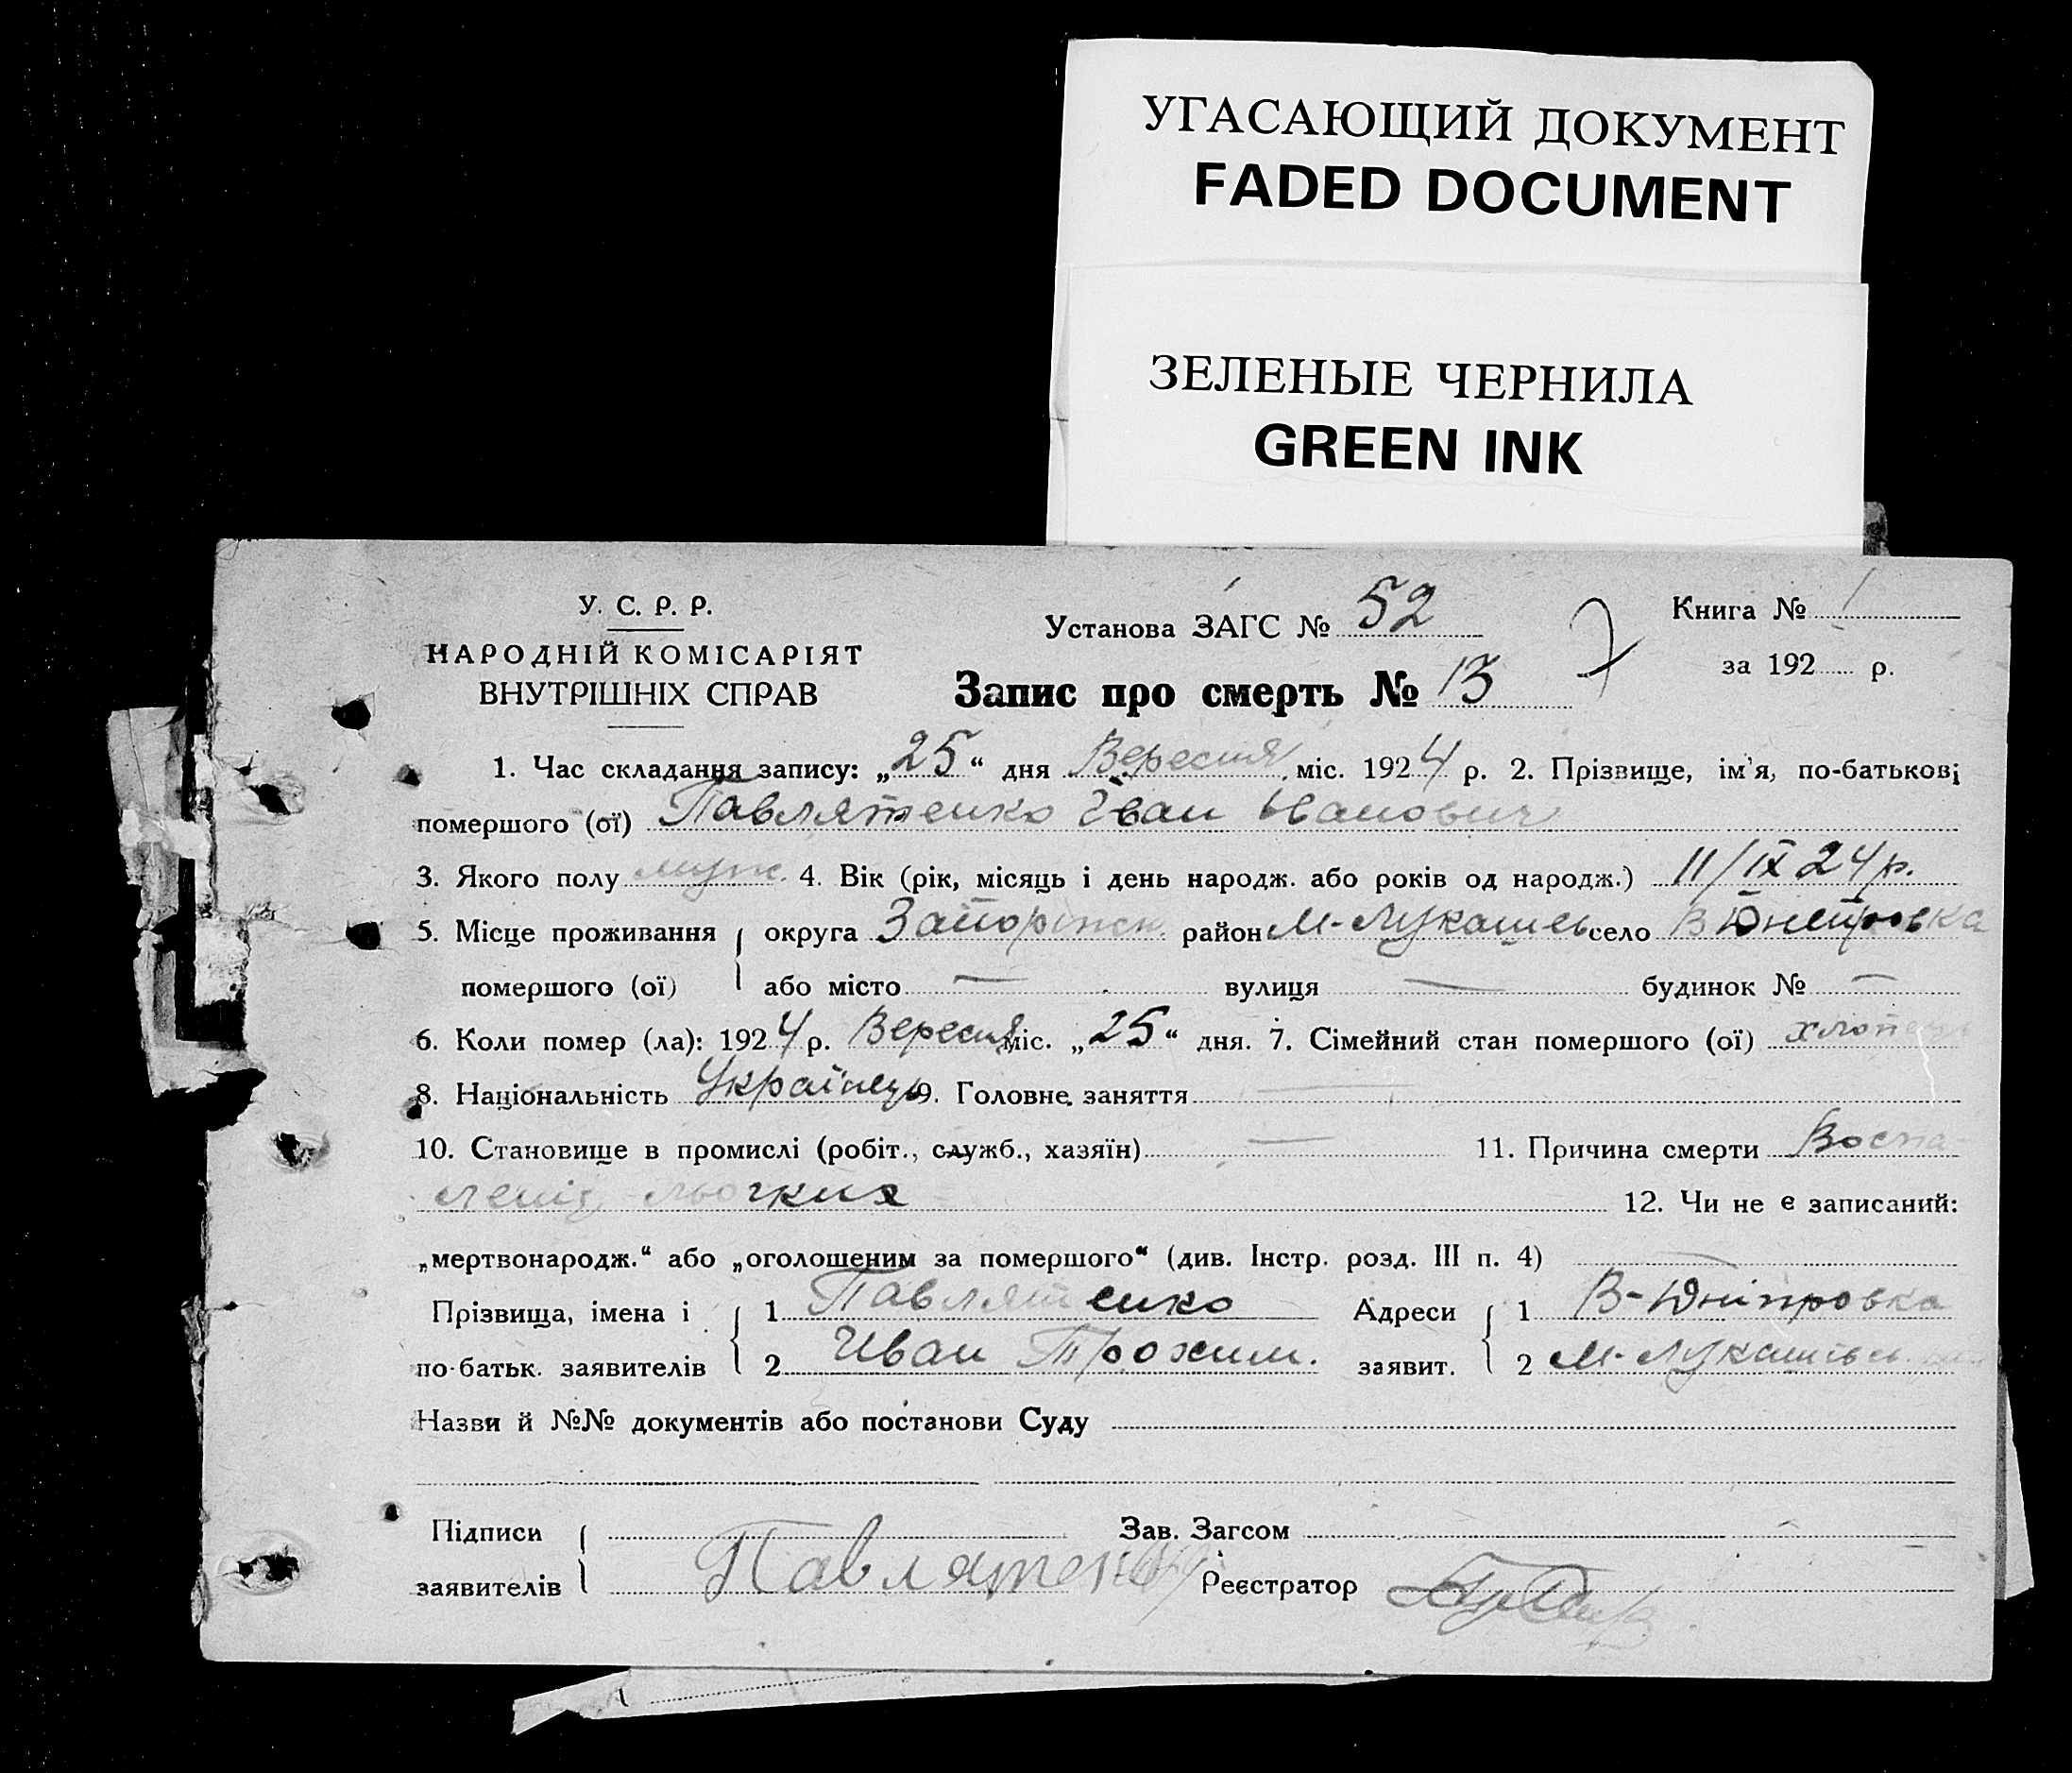 УГАСАЮЩИЙ ДОКУМЕНТ
FADED DOCUMENT
ЗЕЛЕНЫЕ ЧЕРНИЛА
GREEN INK
У. С. Р. Р.
НАРОДНІЙ КОМІСАРІЯТ
ВНУТРІШНІХ СПРАВ
Установа ЗАГС № 52
Книга № 1
за 192 р.
Запис про смерть № 13
1. Час складання запису: „25“ дня Вересня міс. 1924 р. 2. Прізвище, ім'я, по-батькові
помершого (ої) Павлятенко Іван Іванович
3. Якого полу муж. 4. Вік (рік, місяць і день народж. або років од народж.) 11/IX 24 р.
5. Місце проживання округа Запоріжск. район М-Лукашев село В Днепровка
помершого (ої) або місто — вулиця — будинок № —
6. Коли помер (ла): 1924 р. Вересня міс. „25“ дня. 7. Сімейний стан помершого (ої) хлопець
8. Національність Українець 9. Головне заняття —
10. Становище в промислі (робіт., служб., хазяїн) — 11. Причина смерти Воспа
леніє льогких 12. Чи не є записаний:
„мертвонародж.“ або „оголошеним за помершого“ (див. Інстр. розд. III п. 4) —
Прізвища, імена і 1 Павлятенко Адреси 1 В-Дніпровка
по-батьк. заявителів 2 Иван Трохим. заявит. 2 М-Лукашівськ.
Назви й №№ документів або постанови Суду
Підписи Зав. Загсом
заявителів Павлятенко Реєстратор